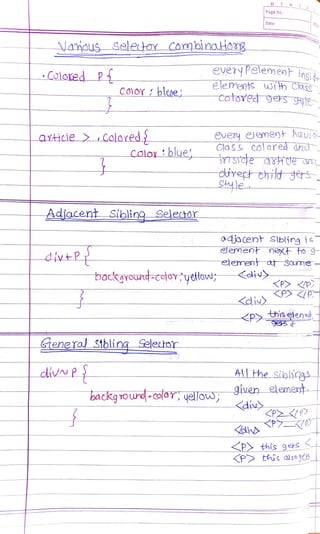 Page No.
Date
Various Selector Combinations
.Colored P {
color : blue;
}
every P element Insid
elements with Class
colored gets style
article > .Colored {
Color : blue;
}
every element havin
Class colored and
inside article an
direct child gets
style.
Adjacent Sibling Selector
div+P {
background-color : yellow;
}
adjacent sibling is
element next to g
element at same
<div>
<P> </P>
<P> </P>
<div>
<P> this element
gets it
General Sibling Selector
div~P {
background-color : yellow;
}
All the siblings
given element.
<div>
<P> </P>
<P> </P>
<div>
<P> this gets
<P> this also gets